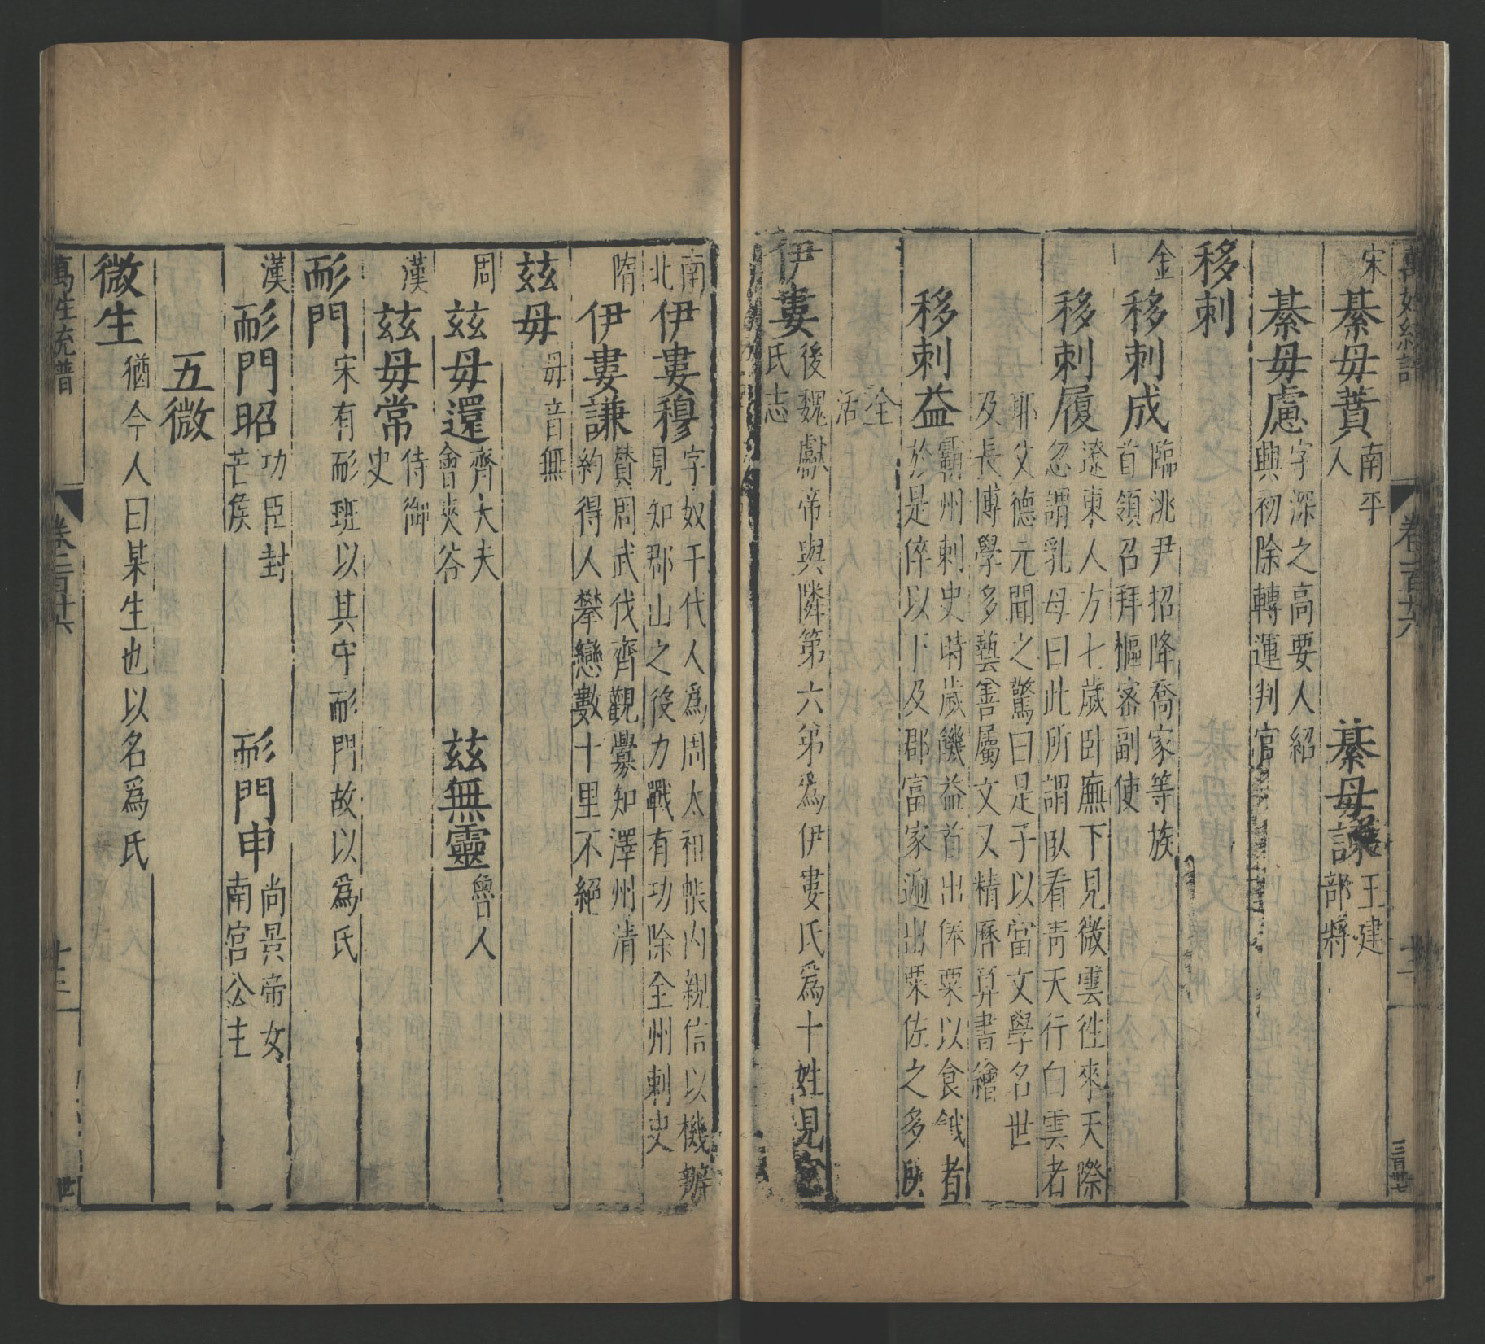 宋
綦毋蕡 南平人
綦毋諫 王建部將
綦毋慮 字深之高要人紹
興初除轉運判官
移剌
金
移剌成 臨洮尹招降喬家等族
首領召拜樞密副使
移剌履 遼東人方七歲卧廡下見微雲往來天際
忽謂乳母曰此所謂卧看青天行白雲者
耶父德元聞之驚曰是子以當文學名世
及長博學多藝善屬文又精曆算書繪
移剌益 霸州刺史時歲饑益首出俸粟以食餓者
於是倅以下及郡富家遍出粟佐之多所
全活
伊婁 後魏獻帝與隣第六弟為伊婁氏為十姓見
氏志
南北
伊婁穆 字奴干代人為周太祖帳內親信以機辦
見知郡山之役力戰有功除金州刺史
隋
伊婁謙 贊周武伐齊觀釁知澤州清
約得人攀戀數十里不絕
玆毋 毋音無
周
玆毋還 齊大夫會夾谷
玆無靈 魯人
漢
玆毋常 侍御史
耏門 宋有耏班以其守耏門故以為氏
漢
耏門昭 功臣封芒侯
耏門申 尚景帝女南宮公主
五微
微生 猶今人曰某生也以名為氏
萬姓統譜